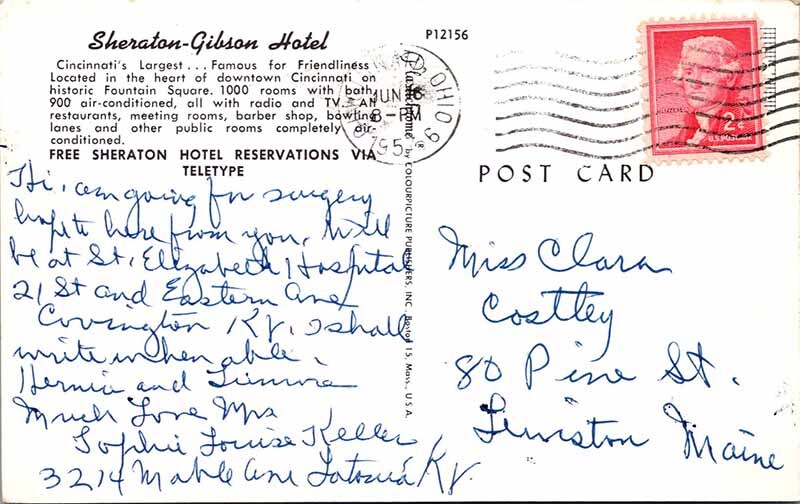 Sheraton-Gibson Hotel
Cincinnati's Largest... Famous for Friendliness
Located in the heart of downtown Cincinnati on
historic Fountain Square. 1000 rooms with bath,
900 air-conditioned, all with radio and TV. All
restaurants, meeting rooms, barber shop, bowling
lanes and other public rooms completely air-
conditioned.
FREE SHERATON HOTEL RESERVATIONS VIA
TELETYPE
P12156
OHIO
JUN 16
8-PM
195
by COLOURPICTURE PUBLISHERS, INC. Boston 15, Mass., U.S.A.
2¢
POST CARD
Hi, am going for surgery
hope to here from you, Will
be at St. Elizabeth Hospital
21 St and Eastern Ave
Covington Ky. I shall
write when able.
Hernia and
Much Love Mrs
Sophie Louise Keller
3214 Mable Ave Latonia Ky.
Miss Clara
Costley
80 Pine St.
Lewiston Maine